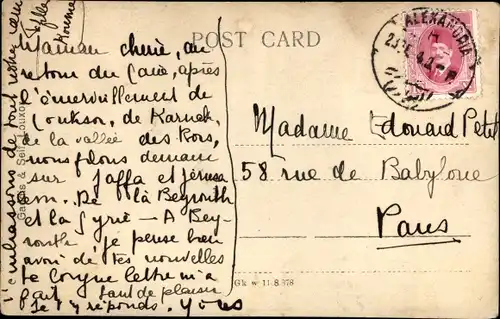 POST CARD
ALEXANDRIA
Maman chérie, au
retour du Caire, après
l'émerveillement de
Louksor, de Karnak,
de la vallée des Rois,
nous filons demain
sur Jaffa et Jérusa
lem. De là Beyrouth
et la Syrie - A Bey
routh je pense bien
avoir de tes nouvelles
Ta longue lettre m'a
fait tant de plaisir
Je t'y réponds. Nous
t'embrassons de tout notre cœur
Madame Edouard Petit
58 rue de Babylone
Paris
Gaddis & Seif, Louxor
Gk w 11.8.378